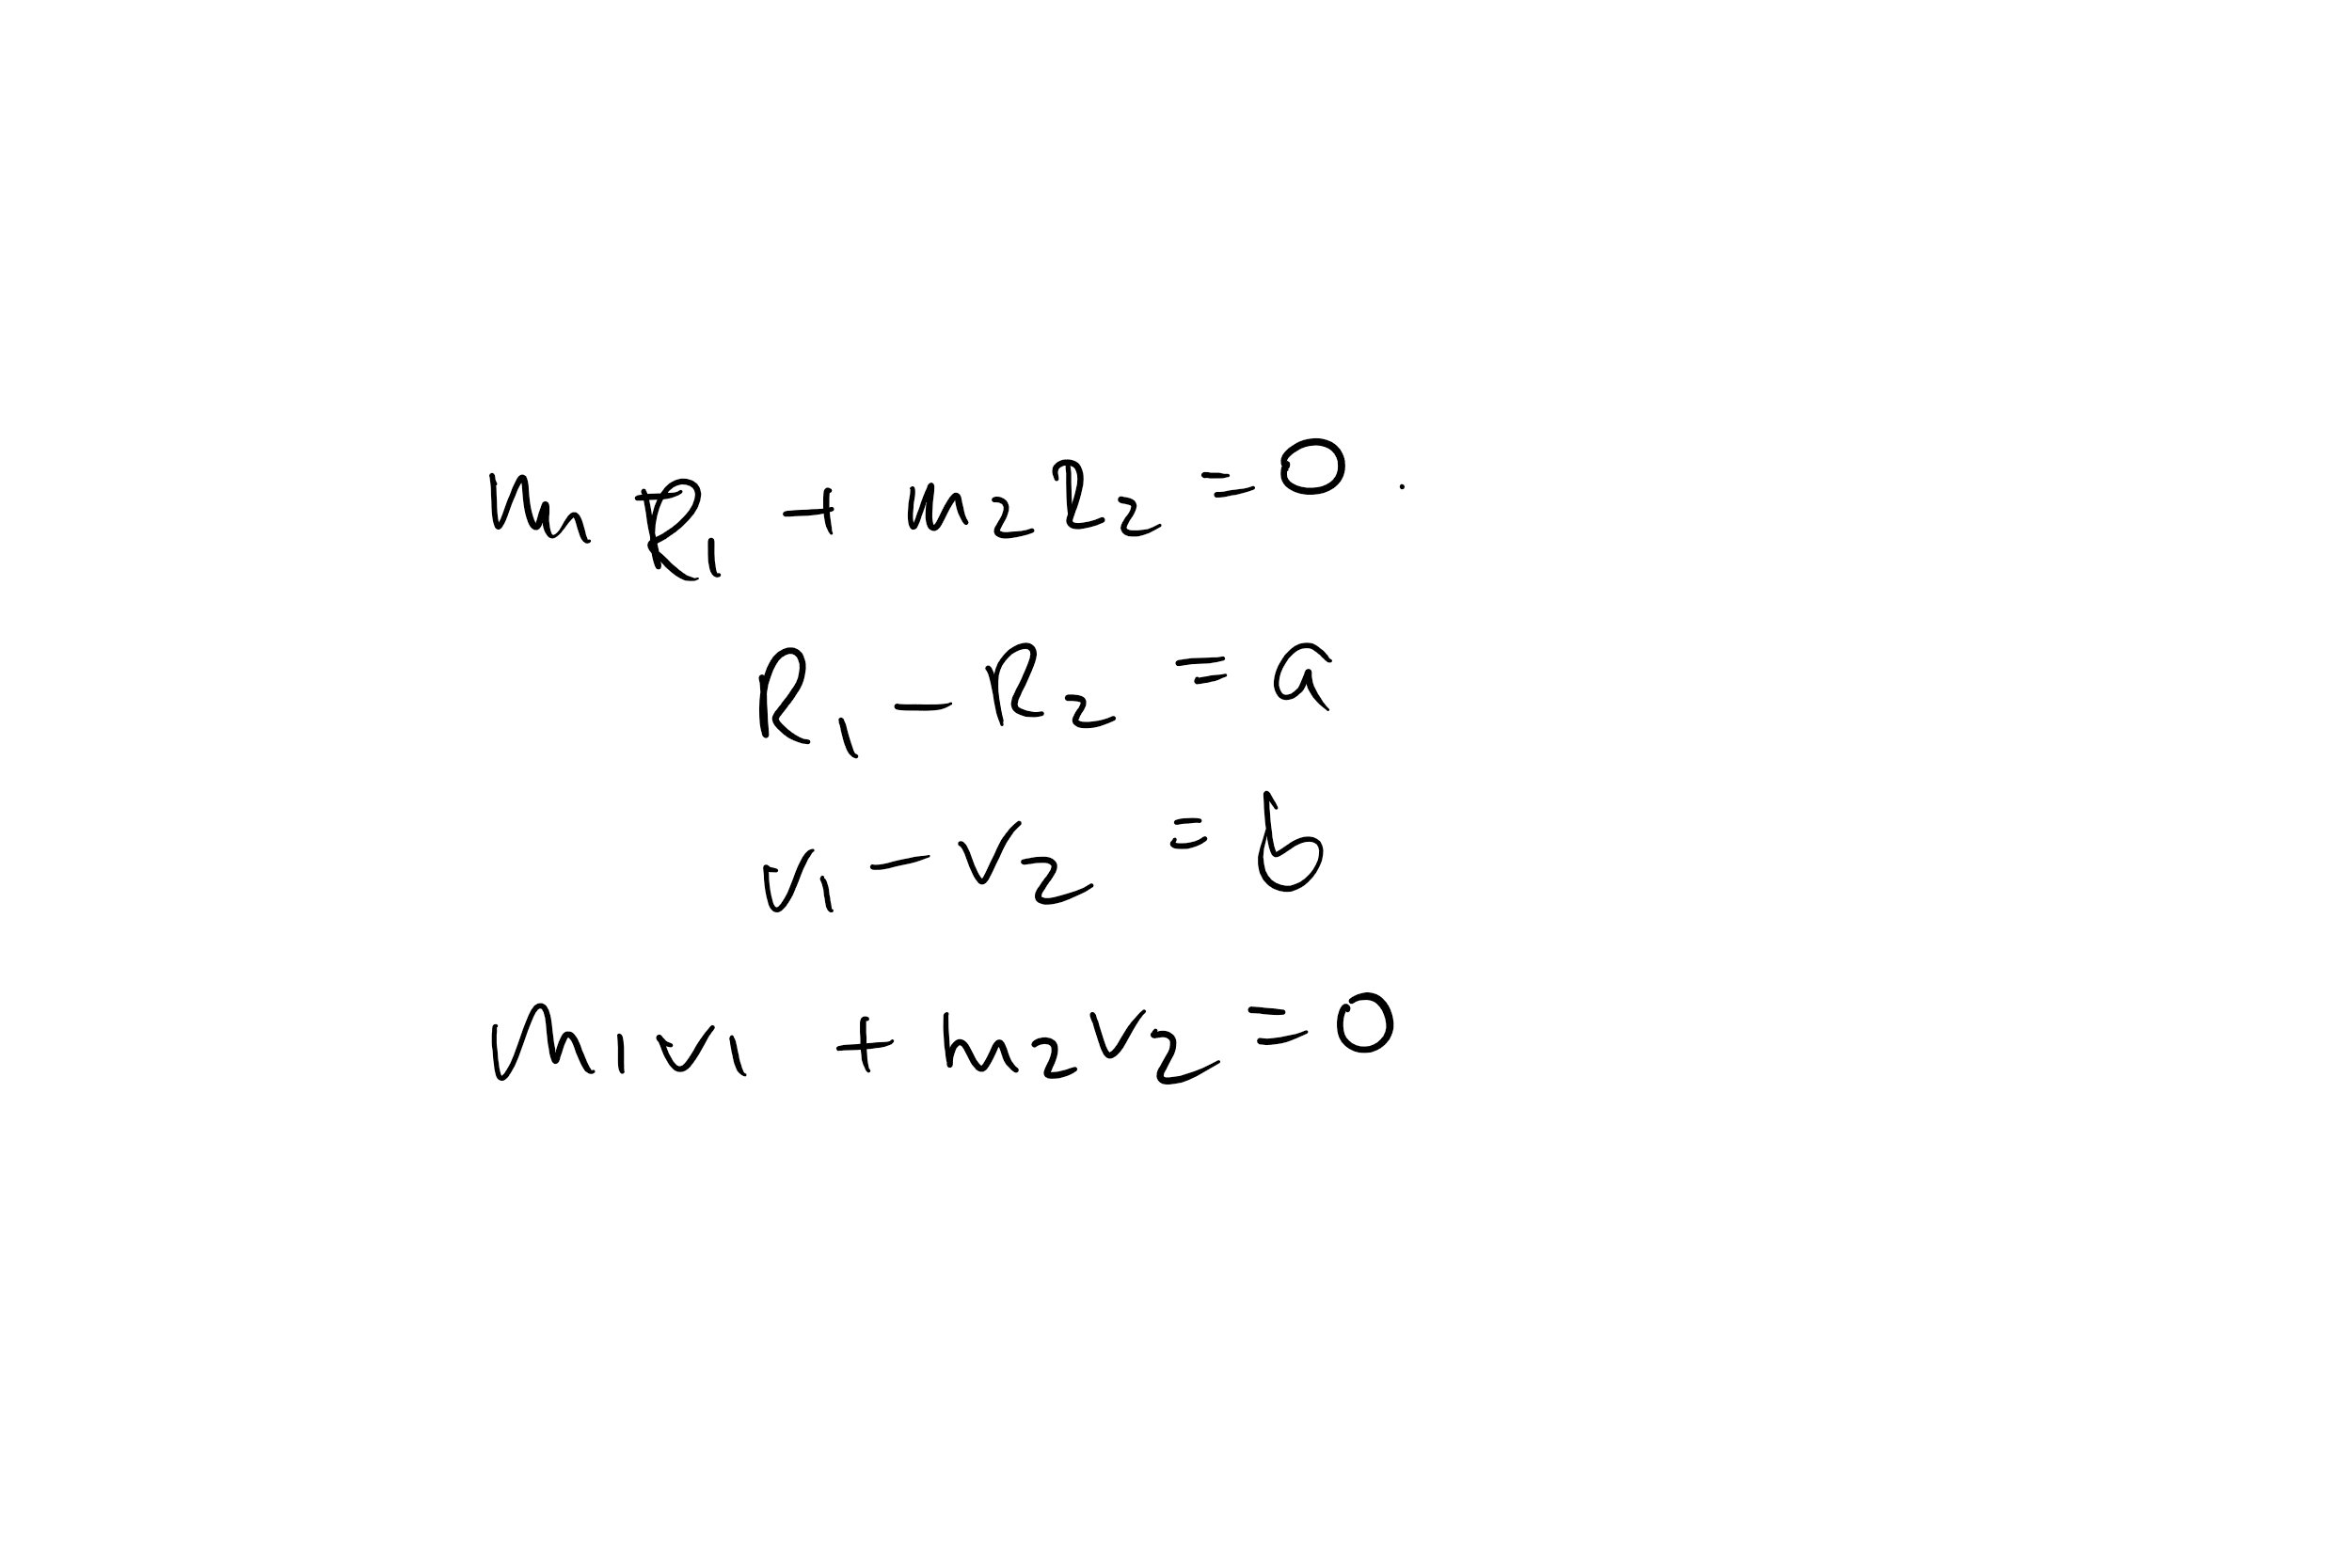 m R₁ + m₂R₂ = 0.
R₁ - R₂ = a
v₁ - v₂ = b
m₁v₁ + m₂v₂ = 0